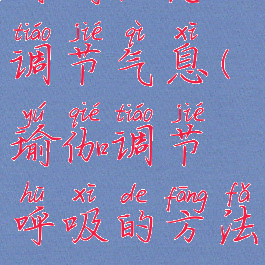 tiáo jié qì xī
调节气息(
yú qié tiáo jié
瑜伽调节
hū xī de fāng fǎ
呼吸的方法